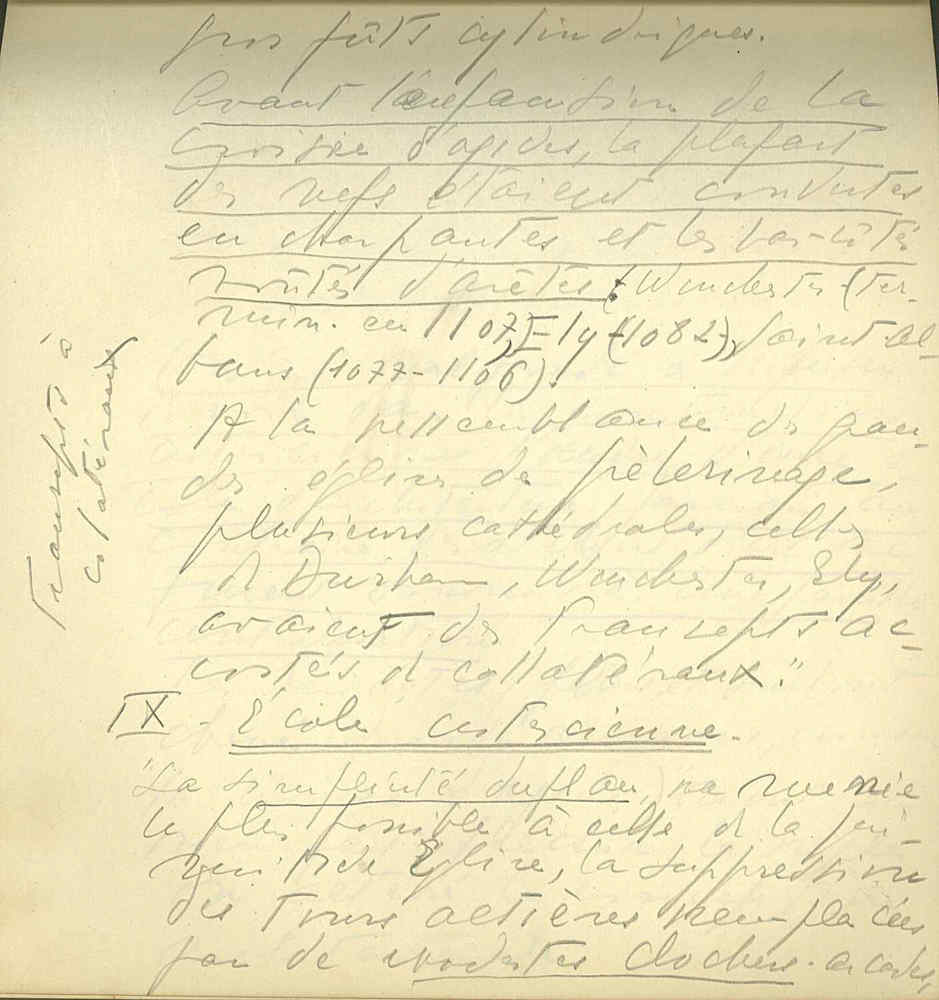 gros fûts cylindriques.
Avant l'expansion de la
Croisée d'ogives, la plupart
des nefs étaient couvertes
en charpentes et les bas-côtés
voûtés d'arêtes: Winchester (ter-
min. en 1107), Ely (1082), Saint Al-
bans (1077-1106).
A la ressemblance des gran-
des églises de pèlerinage,
plusieurs cathédrales, celles
de Durham, Winchester, Ely,
avaient des transepts ac-
costés de collatéraux."
Transepts à
collatéraux
IX - École cistercienne.
"La simplicité du plan, ramenée
le plus possible à celle de la pri-
mitive Église, la suppression
des tours altières remplacées
par de modestes clochers-arcades,